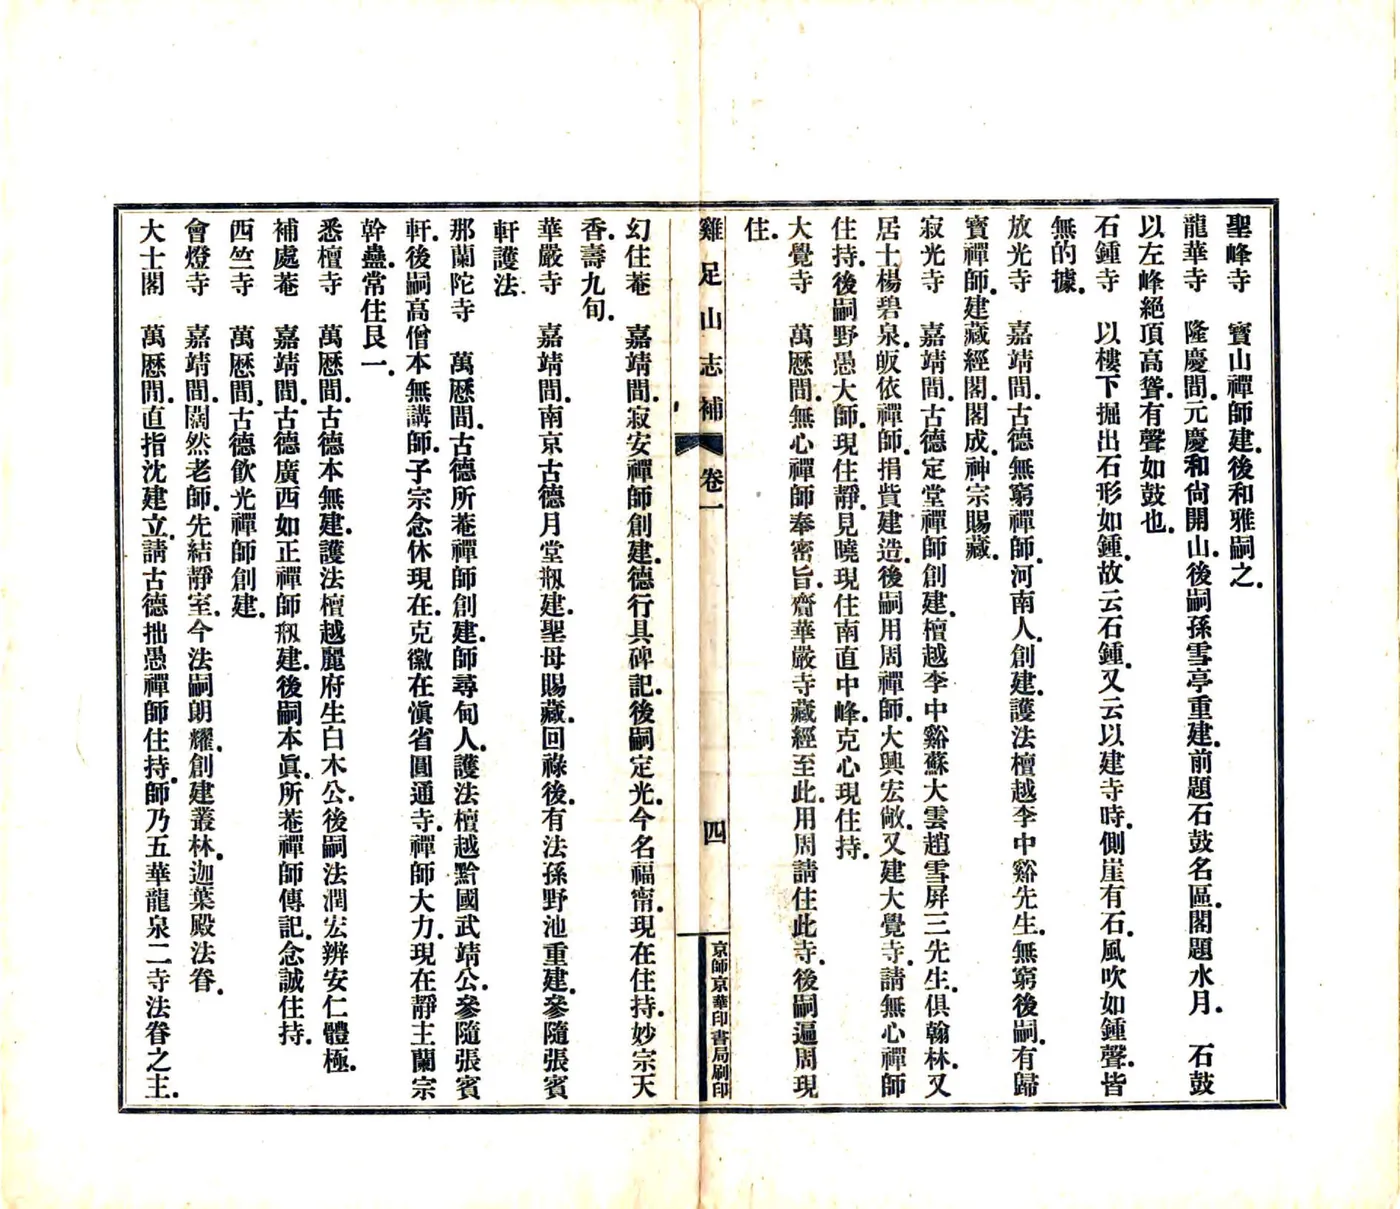 聖峰寺　寶山禪師建.後和雅嗣之.
龍華寺　隆慶間.元慶和尙開山.後嗣孫雪亭重建.前題石鼓名區.閣題水月.　石鼓
以左峰絕頂高聳.有聲如鼓也.
石鍾寺　以樓下掘出石形如鍾.故云石鍾.又云以建寺時.側崖有石.風吹如鍾聲.皆
無的據.
放光寺　嘉靖間.古德無窮禪師.河南人.創建.護法檀越李中谿先生.無窮後嗣.有歸
寶禪師.建藏經閣.閣成.神宗賜藏.
寂光寺　嘉靖間.古德定堂禪師創建.檀越李中谿蘇大雲趙雪屏三先生.俱翰林.又
居士楊碧泉.皈依禪師.捐貲建造.後嗣用周禪師.大興宏敞.又建大覺寺.請無心禪師
住持.後嗣野愚大師.現住靜.見曉現住南直中峰.克心現住持.
大覺寺　萬曆間.無心禪師奉密旨.齎華嚴寺藏經至此.用周請住此寺.後嗣遍周現
住.
雞足山志補　卷一　四　京師京華印書局刷印
幻住菴　嘉靖間.寂安禪師創建.德行具碑記.後嗣定光.今名福甯.現在住持.妙宗天
香.壽九旬.
華嚴寺　嘉靖間.南京古德月堂剏建.聖母賜藏.回祿後.有法孫野池重建.參隨張賓
軒護法.
那蘭陀寺　萬曆間.古德所菴禪師創建.師尋甸人.護法檀越黔國武靖公.參隨張賓
軒.後嗣高僧本無講師.子宗念休現在.克徽在滇省圓通寺.禪師大力.現在靜主蘭宗
幹蠱.常住艮一.
悉檀寺　萬曆間.古德本無建.護法檀越麗府生白木公.後嗣法潤宏辨安仁體極.
補處菴　嘉靖間.古德廣西如正禪師剏建.後嗣本眞.所菴禪師傳記.念誠住持.
西竺寺　萬曆間.古德飮光禪師創建.
會燈寺　嘉靖間.闊然老師.先結靜室.今法嗣朗耀.創建叢林.迦葉殿法眷.
大士閣　萬曆間.直指沈建立.請古德拙愚禪師住持.師乃五華龍泉二寺法眷之主.